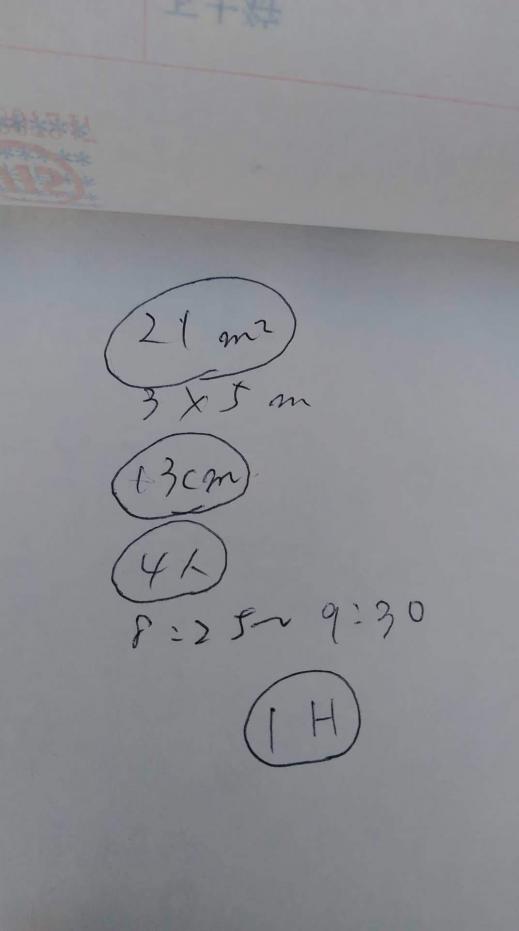 21 m²
3×5 m
+3cm
4人
8:25~9:30
1 H